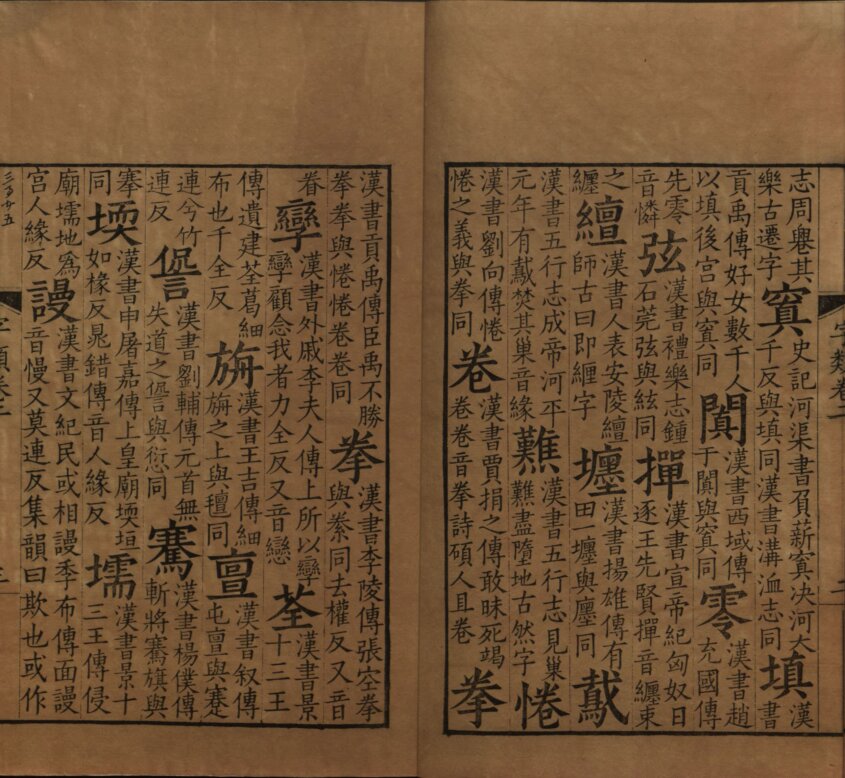 志周舉其
樂古遷字
窴
史記河渠書負薪窴决河大
千反與填同漢書溝洫志同
填
漢
書
貢禹傳好女數千人
以填後宫與窴同
闐
漢書西域傳
于闐與窴同
零
漢書趙
充國傳
先零
音憐
弦
漢書禮樂志鍾
石莞弦與絃同
撣
漢書宣帝紀匈奴日
逐王先賢撣音纏束
之
纏
繵
漢書人表安陵繵
師古曰即纒字
壥
漢書揚雄傳有
田一壥與廛同
䳒
漢書五行志成帝河平
元年有䳒焚其巢音緣
漢書五行志見巢
盡墮地古然字
惓
漢書劉向傳惓
惓之義與拳同
卷
漢書賈捐之傳敢昧死竭
卷卷音拳詩碩人且卷
拳
字類卷二
二
漢書貢禹傳臣禹不勝
拳拳與惓惓卷卷同
拳
漢書李陵傳張空拳
與絭同去權反又音
眷
孿
漢書外戚李夫人傳上所以孿
孿顧念我者力全反又音戀
荃
漢書景
十三王
傳遺建荃葛細
布也千全反
旃
漢書王吉傳細
旃之上與氊同
亶
漢書叙傳
屯亶與蹇
連兮竹
連反
諐
漢書劉輔傳元首無
失道之諐與愆同
騫
漢書楊僕傳
斬將騫旗與
搴
同
堧
漢書申屠嘉傳上皇廟堧垣
如椽反鼂錯傳音人緣反
壖
漢書景十
三王傳侵
廟壖地為
宫人緣反
謾
漢書文紀民或相謾季布傳面謾
音慢又莫連反集韻曰欺也或作
三百廿五
字類卷二
三